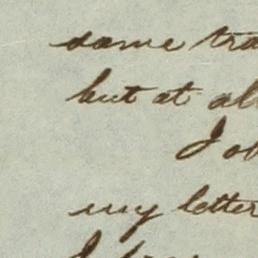 same tra
but at al
I ob
my letter
I